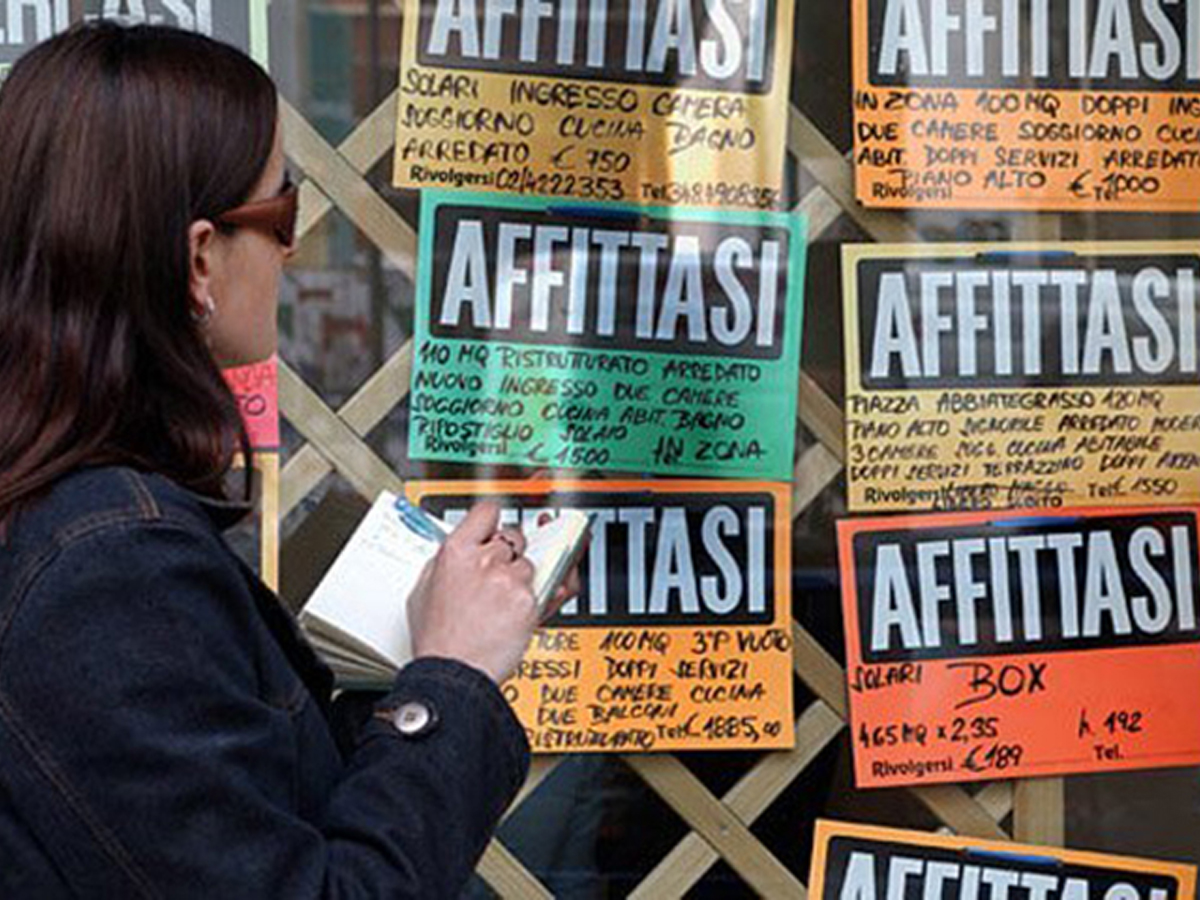 AFFITTASI
SOLARI INGRESSO CAMERA
SOGGIORNO CUCINA BAGNO
ARREDATO € 750
Rivolgersi 02/4222353 Tel.
AFFITTASI
IN ZONA 100 MQ DOPPI
DUE CAMERE SOGGIORNO
ABIT. DOPPI SERVIZI ARREDATO
PIANO ALTO €
Rivolgersi
AFFITTASI
110 MQ RISTRUTTURATO ARREDATO
NUOVO INGRESSO DUE CAMERE
SOGGIORNO CUCINA ABIT. BAGNO
RIPOSTIGLIO SOLAIO
Rivolgersi € 1500 IN ZONA
AFFITTASI
PIAZZA ABBIATEGRASSO 120 MQ
PIANO ALTO SIGNORILE ARREDATO
3 CAMERE SOGG. CUCINA ABITABILE
DOPPI SERVIZI TERRAZZINO DOPPI
Rivolgersi Tel. € 1550
SUBITO
TO
ITTASI
TORE 100 MQ 3°P VUOTO
RESSI DOPPI SERVIZI
O DUE CAMERE CUCINA
DUE BALCONI
Tel. € 1885,00
AFFITTASI
SOLARI BOX
465 MQ x 2,35 h. 192
Rivolgersi € 189 Tel.
AFFITTASI